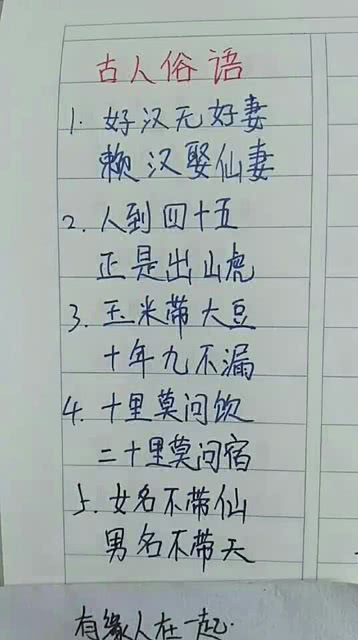 古人俗语
1. 好汉无好妻
赖汉娶仙妻
2. 人到四十五
正是出山虎
3. 玉米带大豆
十年九不漏
4. 十里莫问饮
二十里莫问宿
5. 女名不带仙
男名不带天
有缘人在一起.